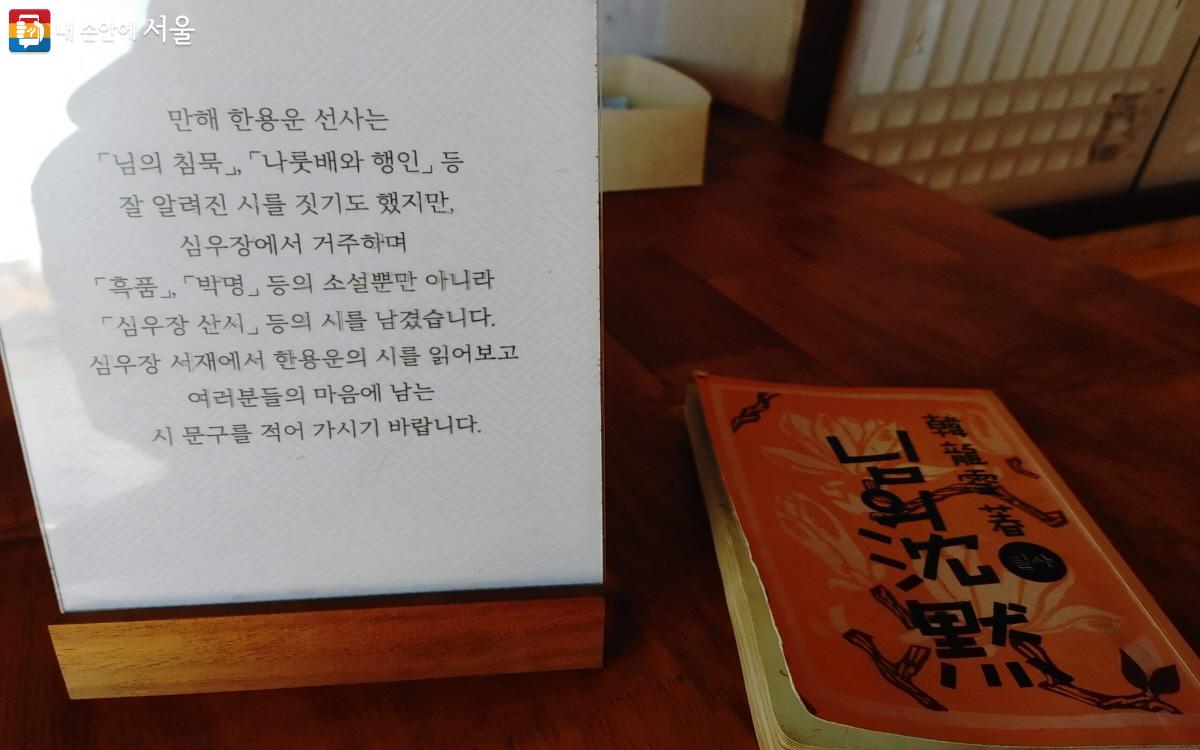 내 손안에 서울
만해 한용운 선사는
「님의 침묵」, 「나룻배와 행인」 등
잘 알려진 시를 짓기도 했지만,
심우장에서 거주하며
「흑품」, 「박명」 등의 소설뿐만 아니라
「심우장 산시」 등의 시를 남겼습니다.
심우장 서재에서 한용운의 시를 읽어보고
여러분들의 마음에 남는
시 문구를 적어 가시기 바랍니다.
韓龍雲 著
님의 沈默
필사